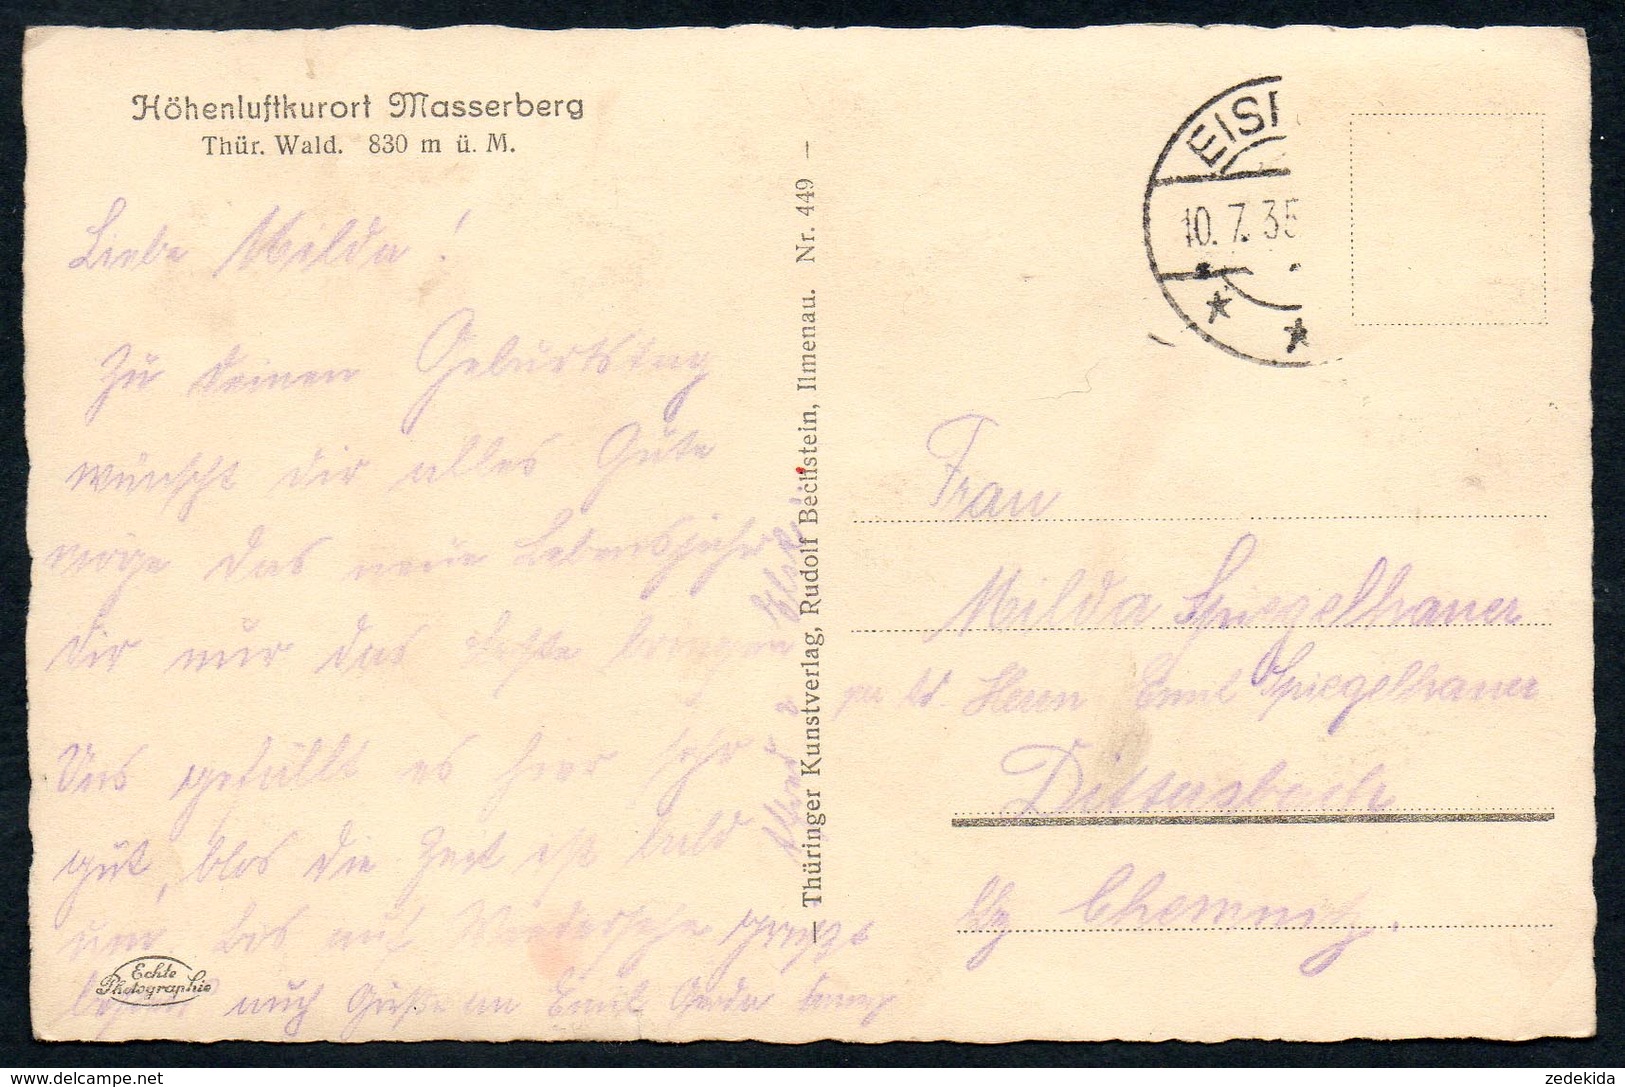 Höhenluftkurort Masserberg
Thür. Wald. 830 m ü. M.
Liebe Milda!
Zu deinen Geburtstag
wünscht dir alles Gute
möge das neue Lebensjahr
dir nur das beste bringen
Uns gefällt es hier sehr
gut, blos die Zeit ist bald
um. Bis auf Wiedersehn grüßt
auch Grüße an Emil Gerda
Echte
Photographie
— Thüringer Kunstverlag, Rudolf Bechstein, Ilmenau. Nr. 449 —
EISF
10.7.35
Frau
Milda Spiegelhauer
Herrn Emil Spiegelhauer
Dittersbach
Chemnitz.
zedekida